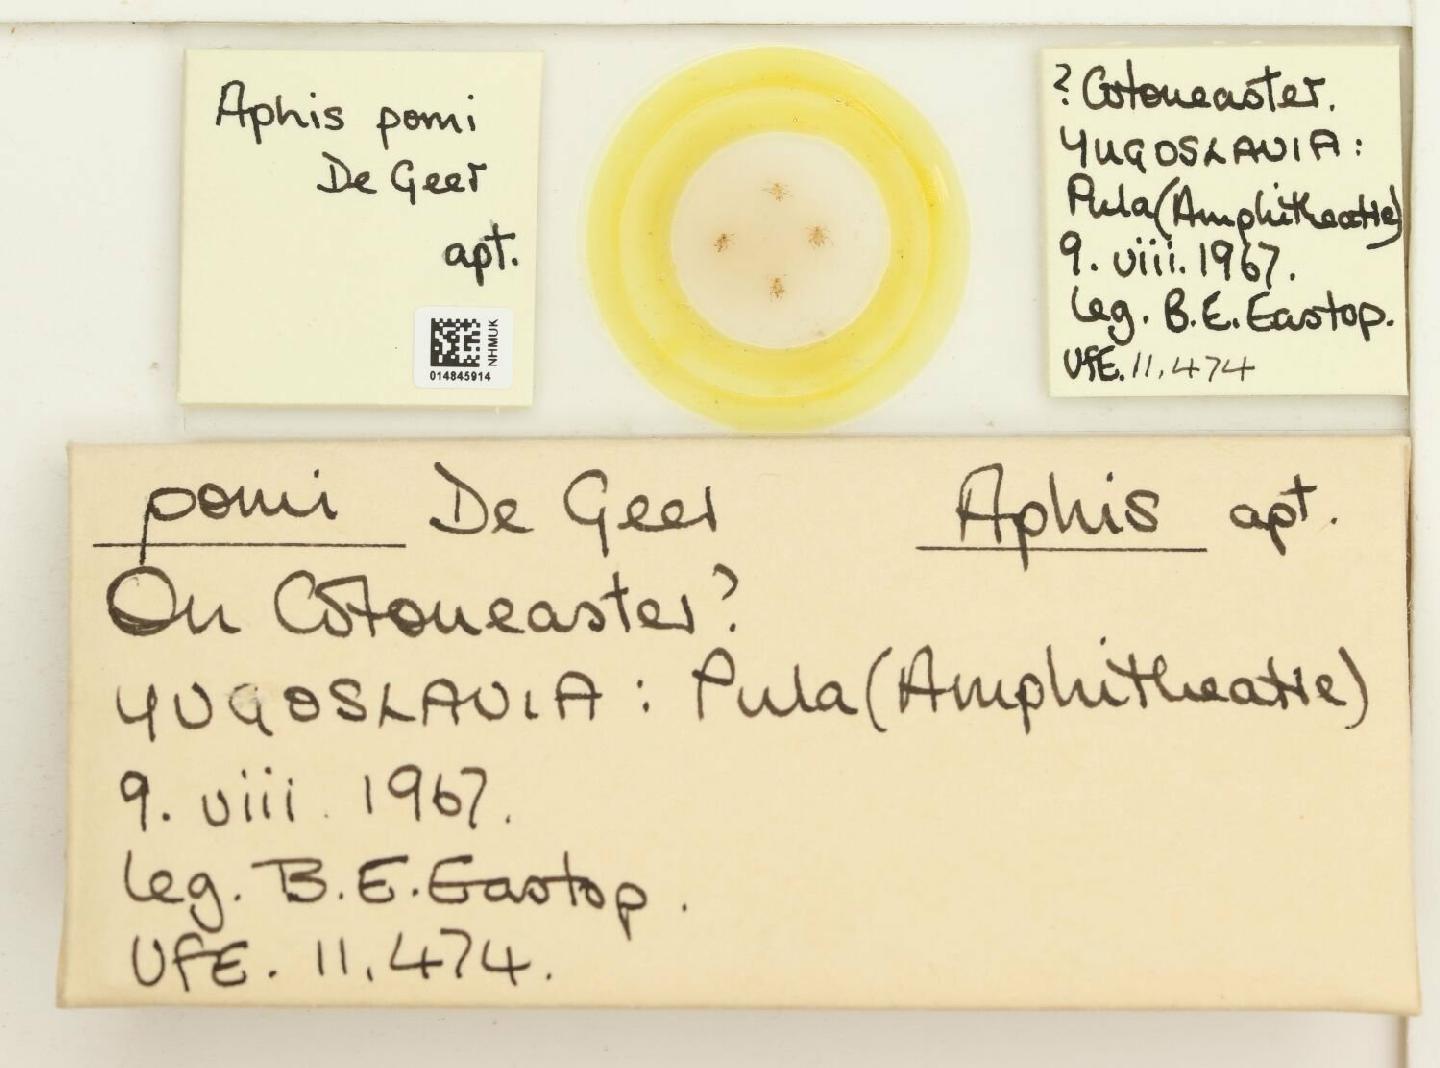 Aphis pomi
De Geer
apt.
NHMUK
014845914
? Cotoneaster.
YUGOSLAVIA:
Pula (Amphitheatre)
9. viii. 1967.
leg. B.E. Eastop.
VfE. 11,474
pomi De Geer Aphis apt.
On Cotoneaster?
YUGOSLAVIA: Pula (Amphitheatre)
9. viii. 1967.
leg. B.E. Eastop.
VfE. 11,474.